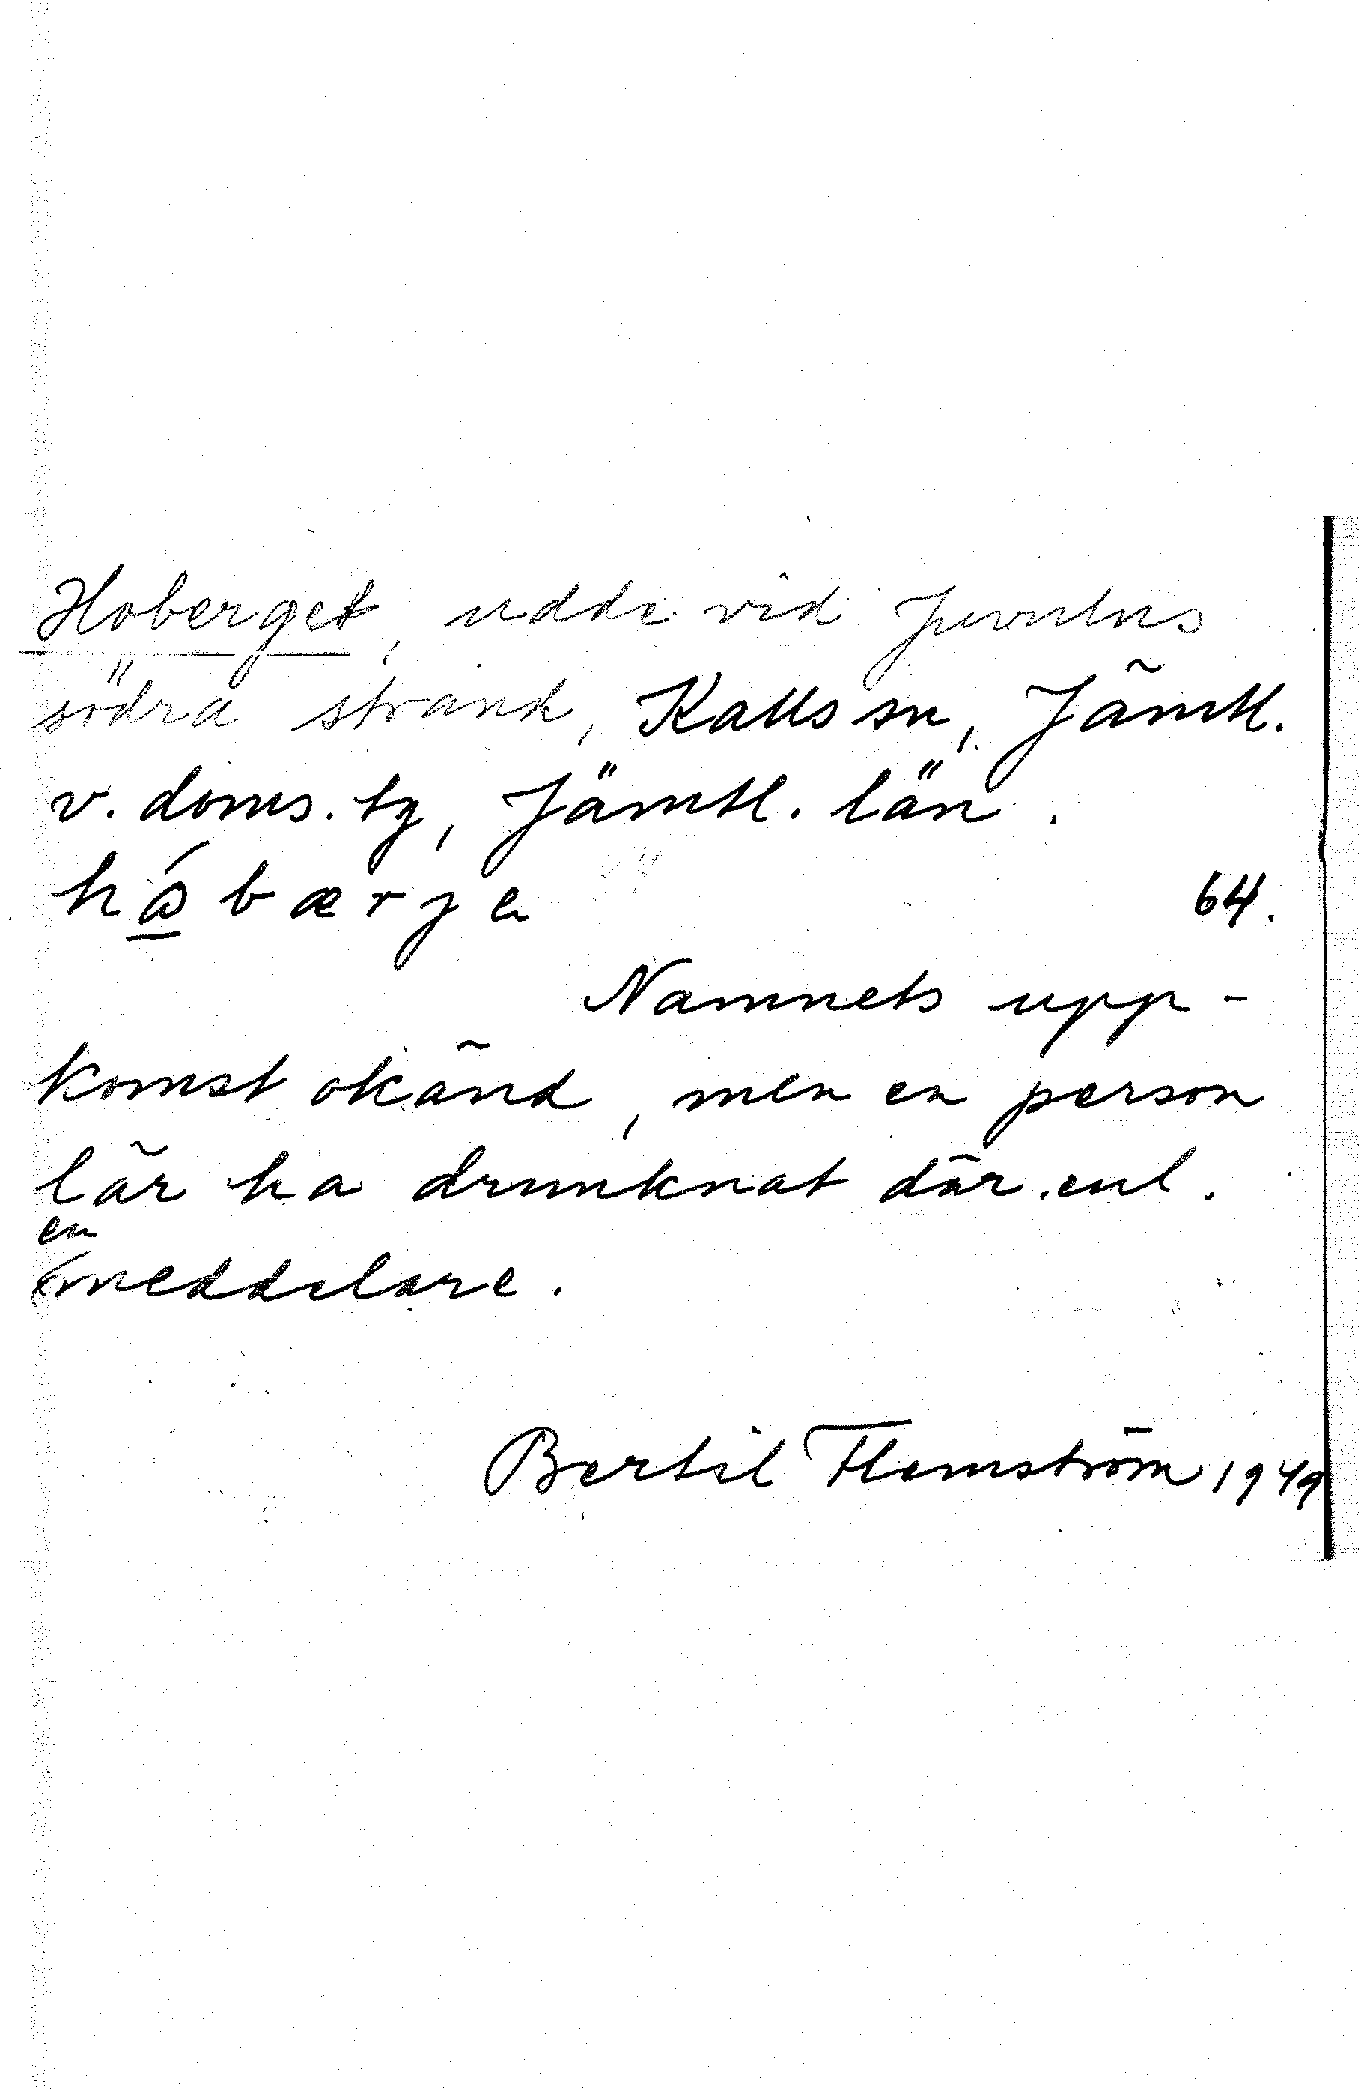 Hoberget, udde vid Juvulns
södra strand, Kalls sn, Jämtl.
v. doms. tg, Jämtl. län.
hó̲bærje 64.
Namnets upp-
komst okänd, men en person
lär ha drunknat där. enl.
en
meddelare.
Bertil Flemström 1949